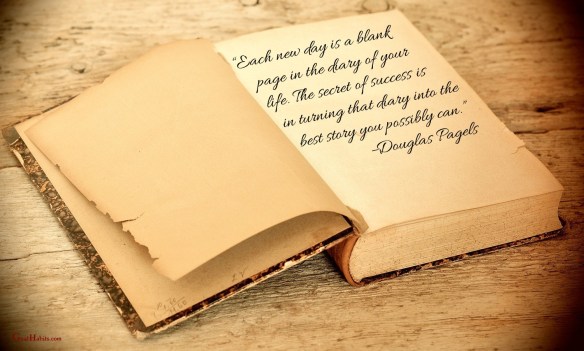 “Each new day is a blank
page in the diary of your
life. The secret of success is
in turning that diary into the
best story you possibly can.”
-Douglas Pagels